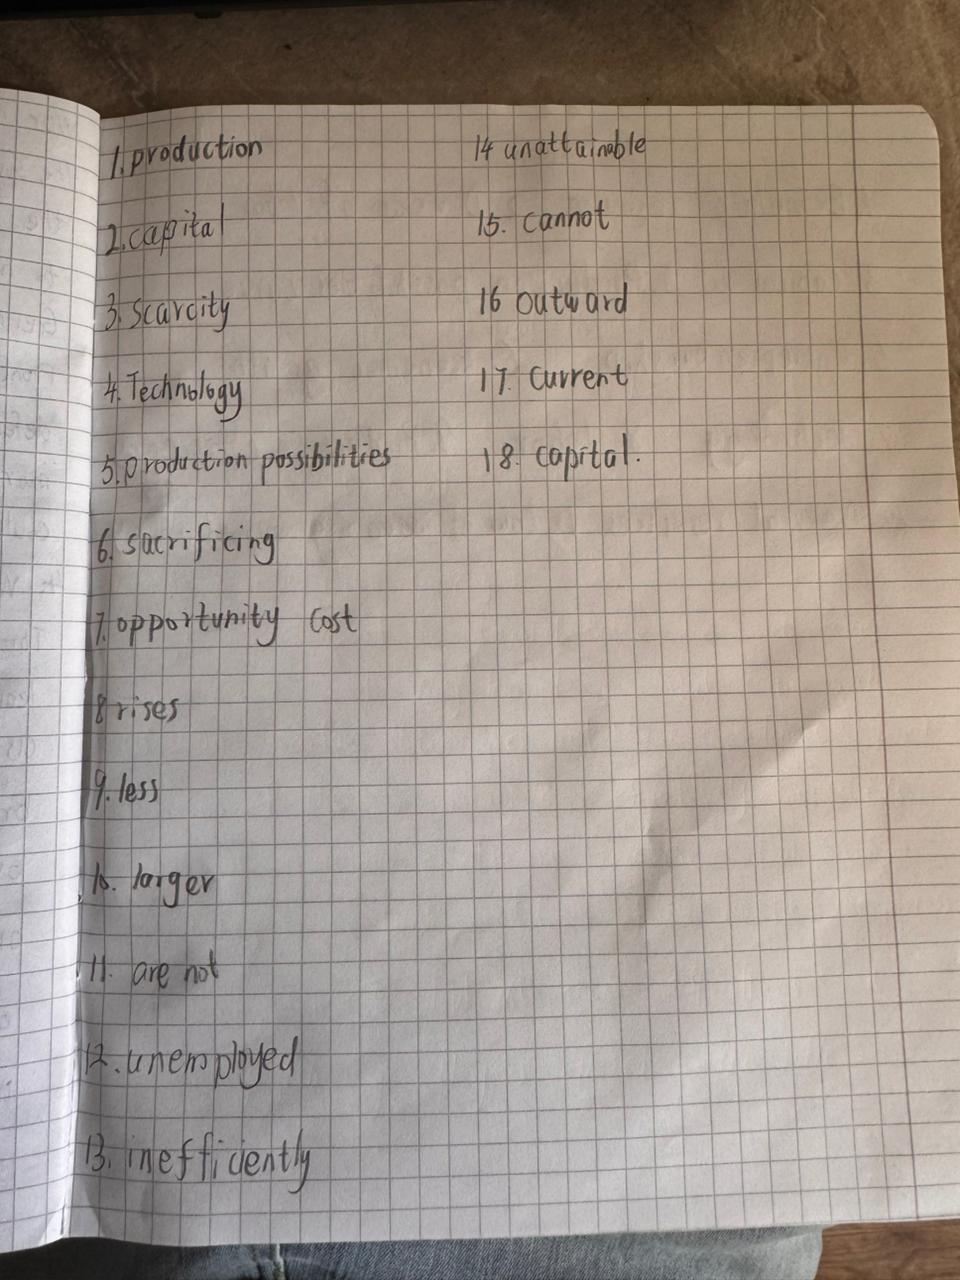 1. production
2. capital
3. Scarcity
4. Technology
5. production possibilities
6. sacrificing
7. opportunity cost
8 rises
9. less
10. larger
11. are not
12. unemployed
13. inefficiently
14 unattainable
15. cannot
16 outward
17. current
18. capital.